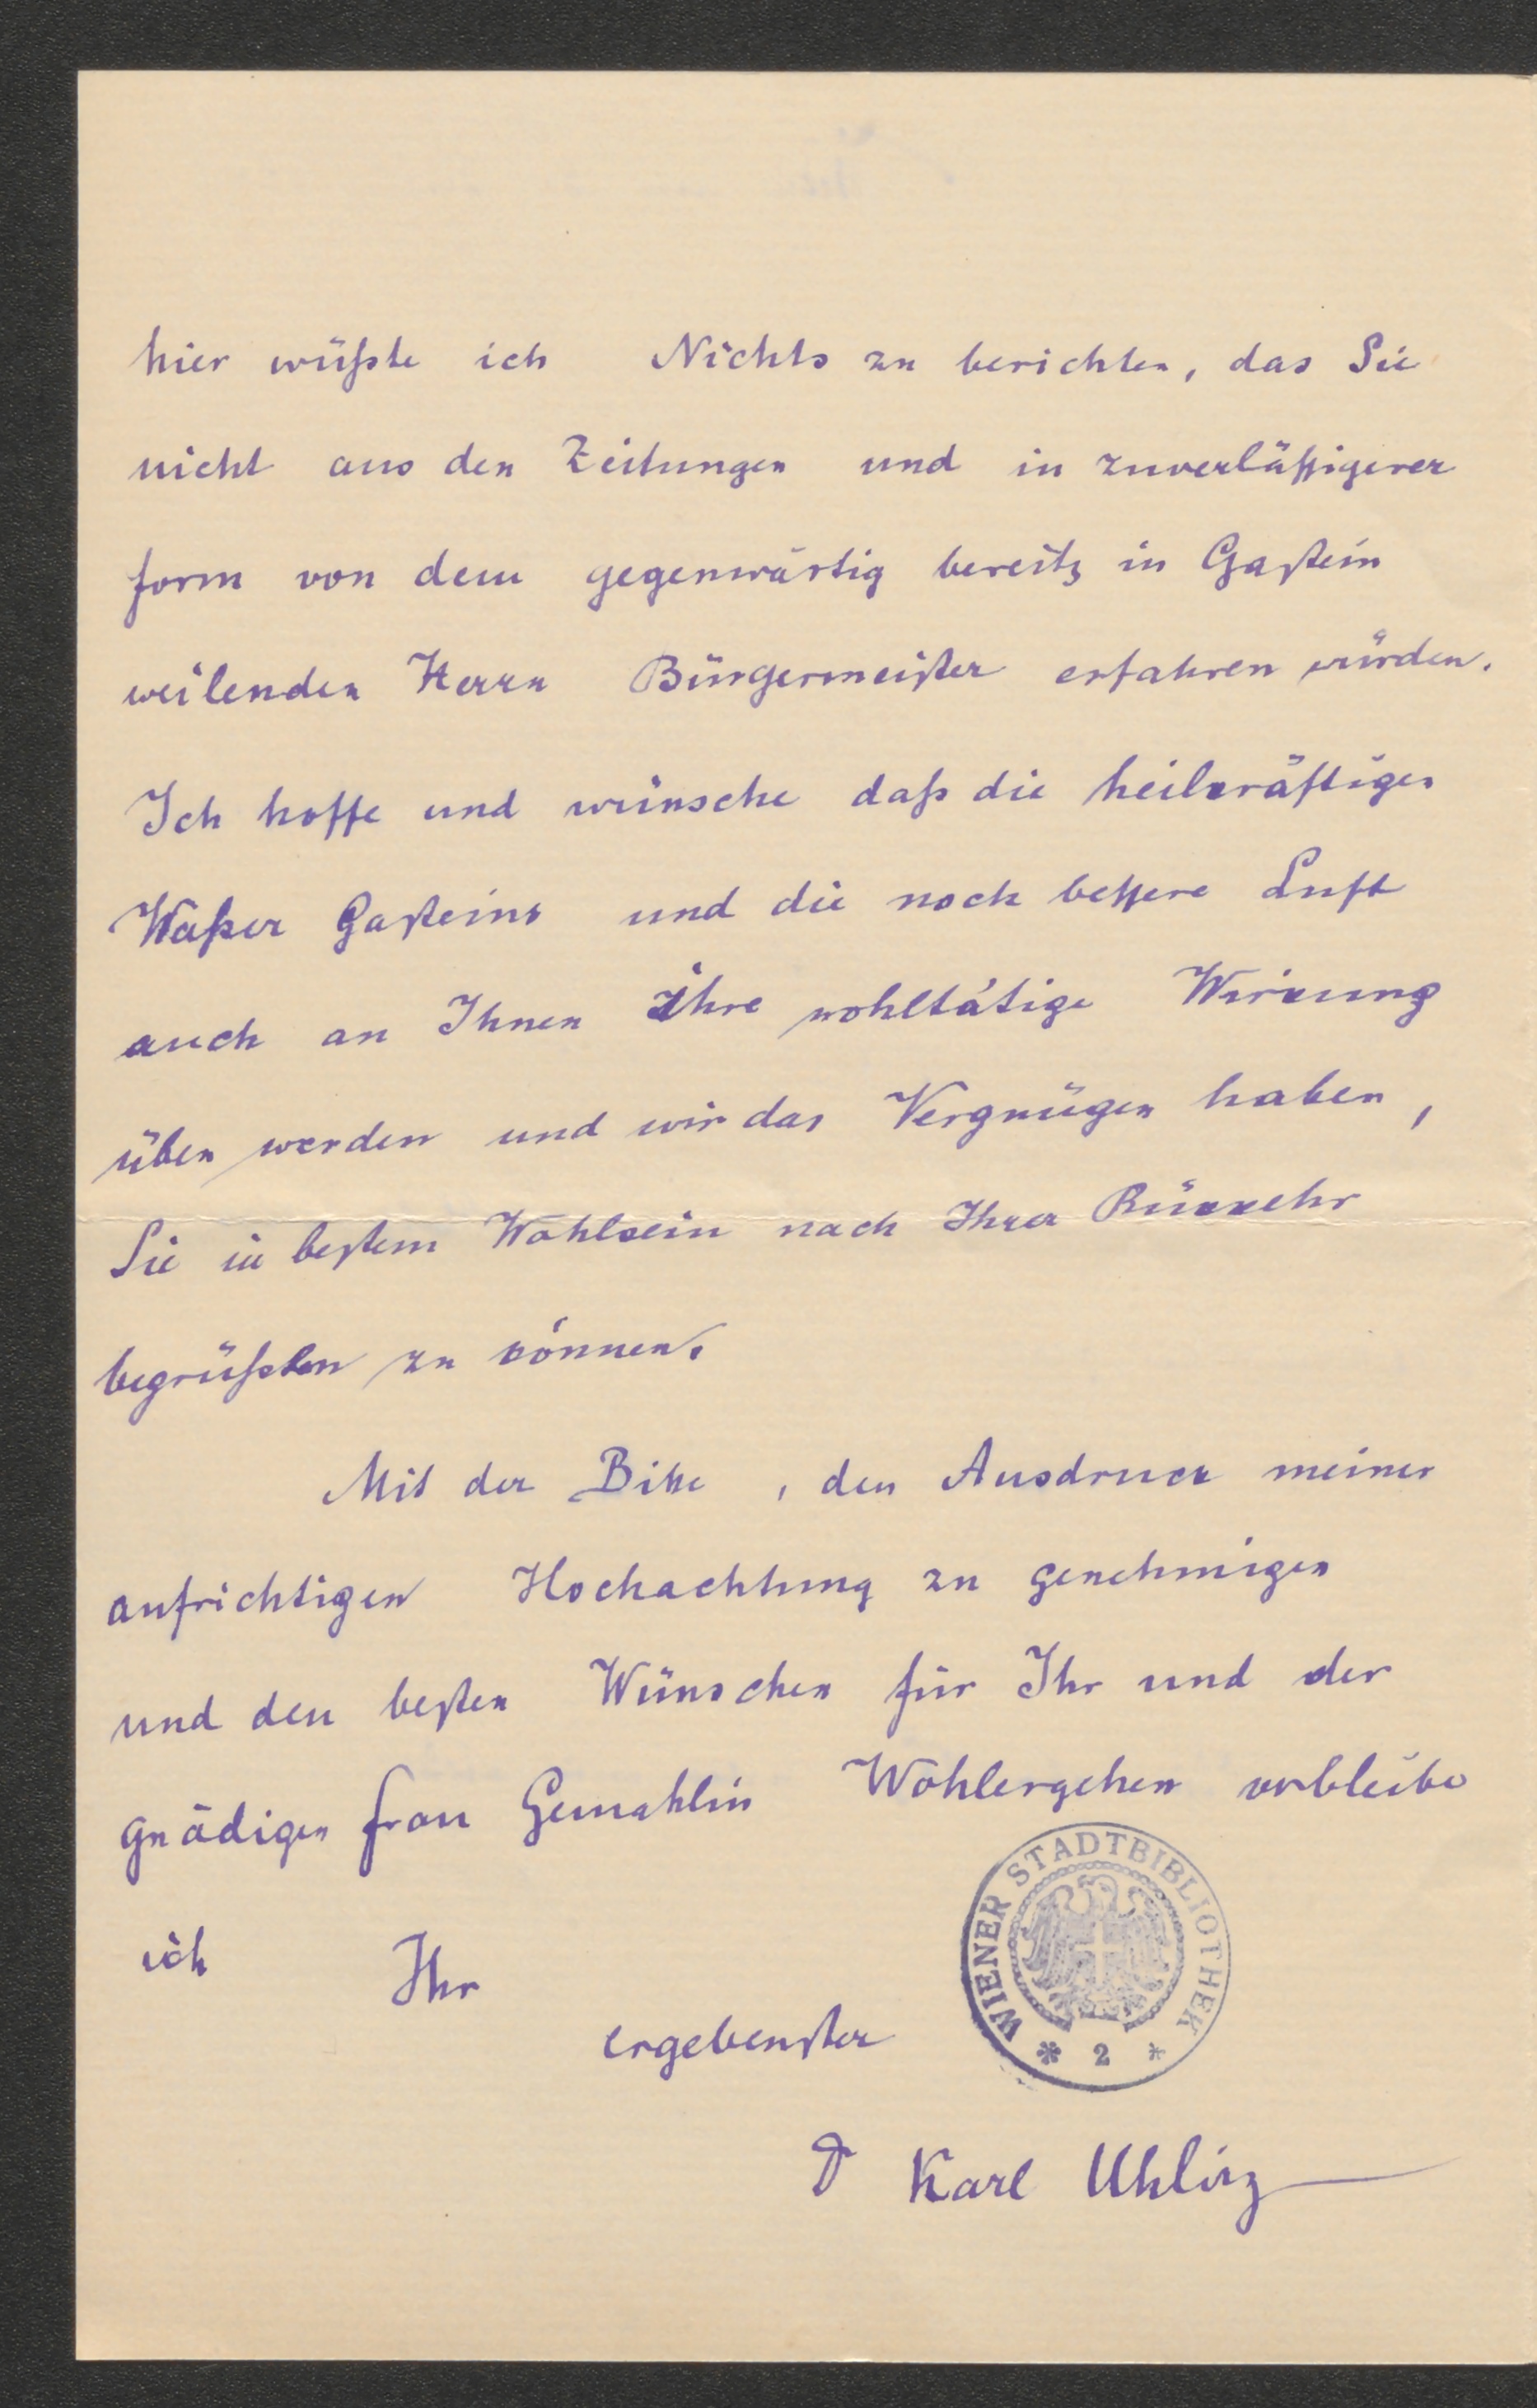 hier wüßte ich Nichts zu berichten, das Sie
nicht aus den Zeitungen und in zuverläßigerer
Form von dem gegenwärtig bereits in Gastein
weilenden Herrn Bürgermeister erfahren würden.
Ich hoffe und wünsche daß die heilkräftigen
Waßer Gasteins und die noch beßere Luft
auch an Ihnen ihre wohltätige Wirkung
üben werden und wir das Vergnügen haben,
Sie in bestem Wohlsein nach Ihrer Rückkehr
begrüßen zu können.
Mit der Bitte, den Ausdruck meiner
aufrichtigen Hochachtung zu genehmigen
und den besten Wünschen für Ihr und der
gnädigen Frau Gemahlin Wohlergehen verbleibe
ich Ihr
ergebenster
WIENER STADTBIBLIOTHEK
* 2 *
Dr Karl Uhlirz